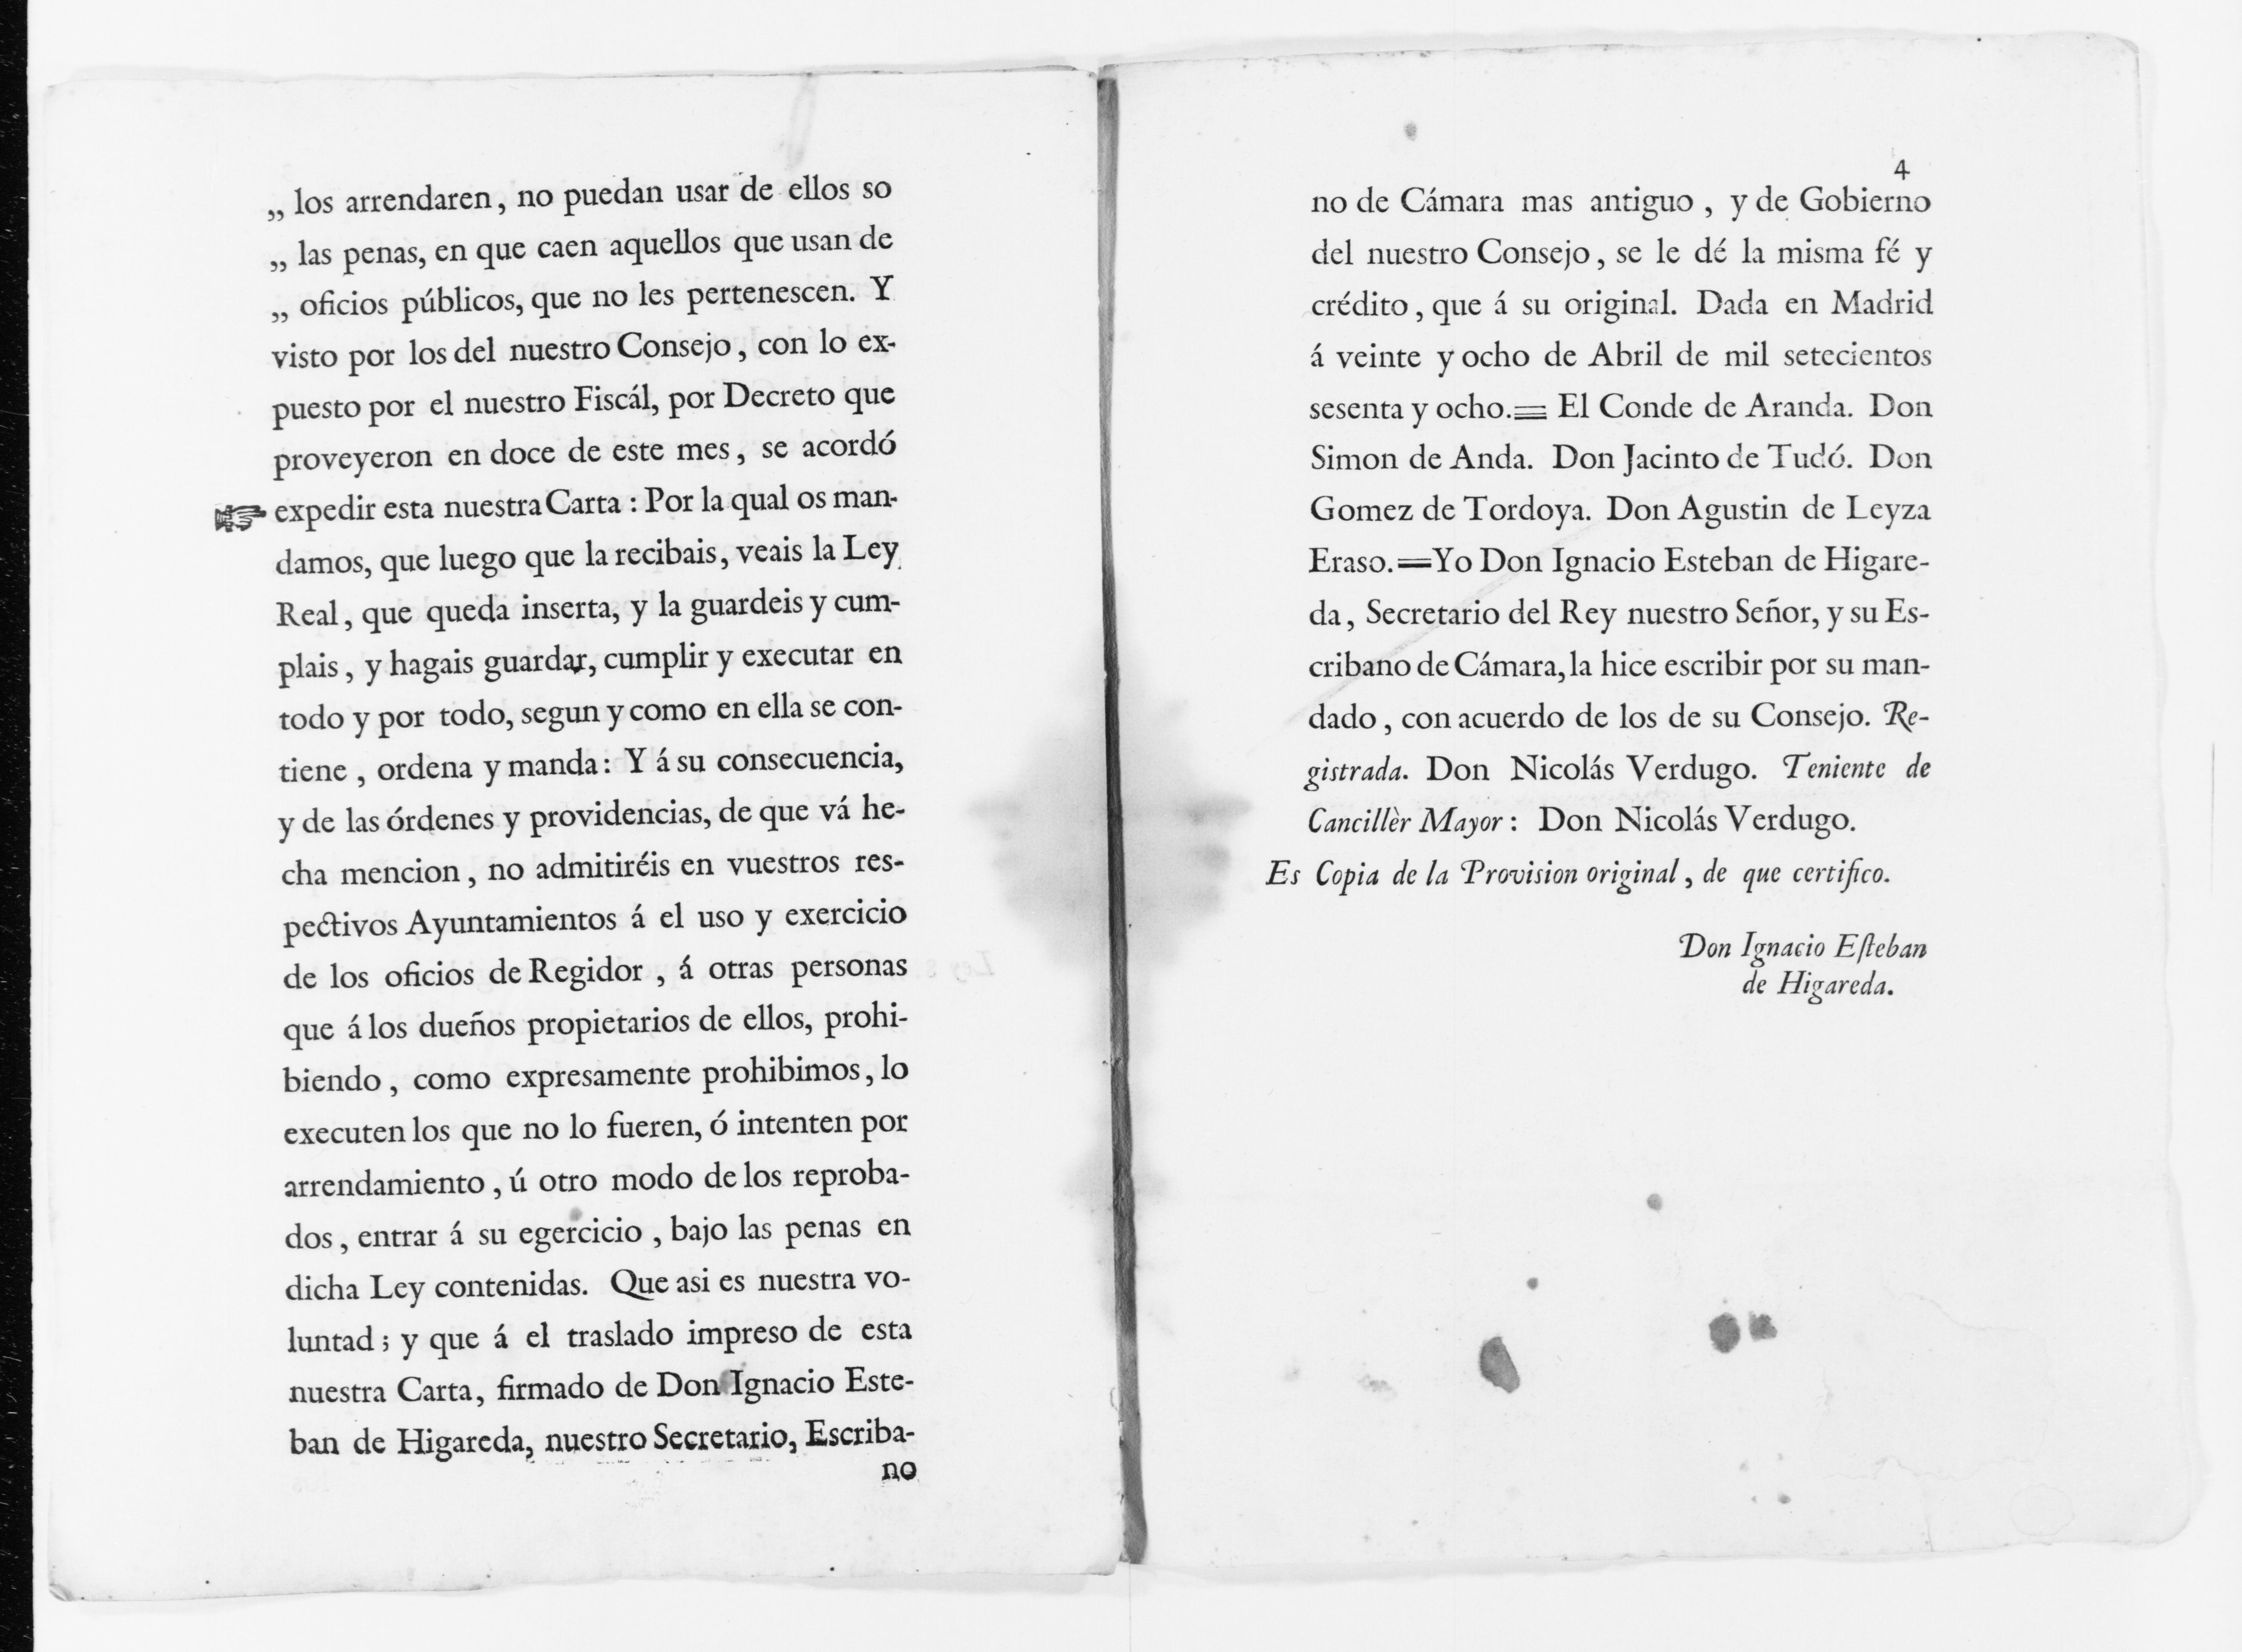 „ los arrendaren, no puedan usar de ellos so
„ las penas, en que caen aquellos que usan de
„ oficios públicos, que no les pertenescen. Y
visto por los del nuestro Consejo, con lo ex-
puesto por el nuestro Fiscál, por Decreto que
proveyeron en doce de este mes, se acordó
☞ expedir esta nuestra Carta : Por la qual os man-
damos, que luego que la recibais, veais la Ley
Real, que queda inserta, y la guardeis y cum-
plais, y hagais guardar, cumplir y executar en
todo y por todo, segun y como en ella se con-
tiene, ordena y manda: Y á su consecuencia,
y de las órdenes y providencias, de que vá he-
cha mencion, no admitiréis en vuestros res-
pectivos Ayuntamientos á el uso y exercicio
de los oficios de Regidor, á otras personas
que á los dueños propietarios de ellos, prohi-
biendo, como expresamente prohibimos, lo
executen los que no lo fueren, ó intenten por
arrendamiento, ú otro modo de los reproba-
dos, entrar á su egercicio, bajo las penas en
dicha Ley contenidas. Que asi es nuestra vo-
luntad; y que á el traslado impreso de esta
nuestra Carta, firmado de Don Ignacio Este-
ban de Higareda, nuestro Secretario, Escriba-
no
4
no de Cámara mas antiguo, y de Gobierno
del nuestro Consejo, se le dé la misma fé y
crédito, que á su original. Dada en Madrid
á veinte y ocho de Abril de mil setecientos
sesenta y ocho.= El Conde de Aranda. Don
Simon de Anda. Don Jacinto de Tudó. Don
Gomez de Tordoya. Don Agustin de Leyza
Eraso.=Yo Don Ignacio Esteban de Higare-
da, Secretario del Rey nuestro Señor, y su Es-
cribano de Cámara, la hice escribir por su man-
dado, con acuerdo de los de su Consejo. Re-
gistrada. Don Nicolás Verdugo. Teniente de
Cancillèr Mayor: Don Nicolás Verdugo.
Es Copia de la Provision original, de que certifico.
Don Ignacio Eſteban
de Higareda.